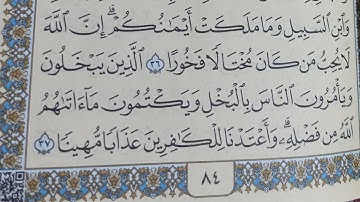 وَٱبْنِ ٱلسَّبِيلِ وَمَا مَلَكَتْ أَيْمَٰنُكُمْ ۗ إِنَّ ٱللَّهَ
لَا يُحِبُّ مَن كَانَ مُخْتَالًا فَخُورًا ٣٦ ٱلَّذِينَ يَبْخَلُونَ
وَيَأْمُرُونَ ٱلنَّاسَ بِٱلْبُخْلِ وَيَكْتُمُونَ مَآ ءَاتَىٰهُمُ
ٱللَّهُ مِن فَضْلِهِۦ ۗ وَأَعْتَدْنَا لِلْكَٰفِرِينَ عَذَابًا مُّهِينًا ٣٧
٨٤